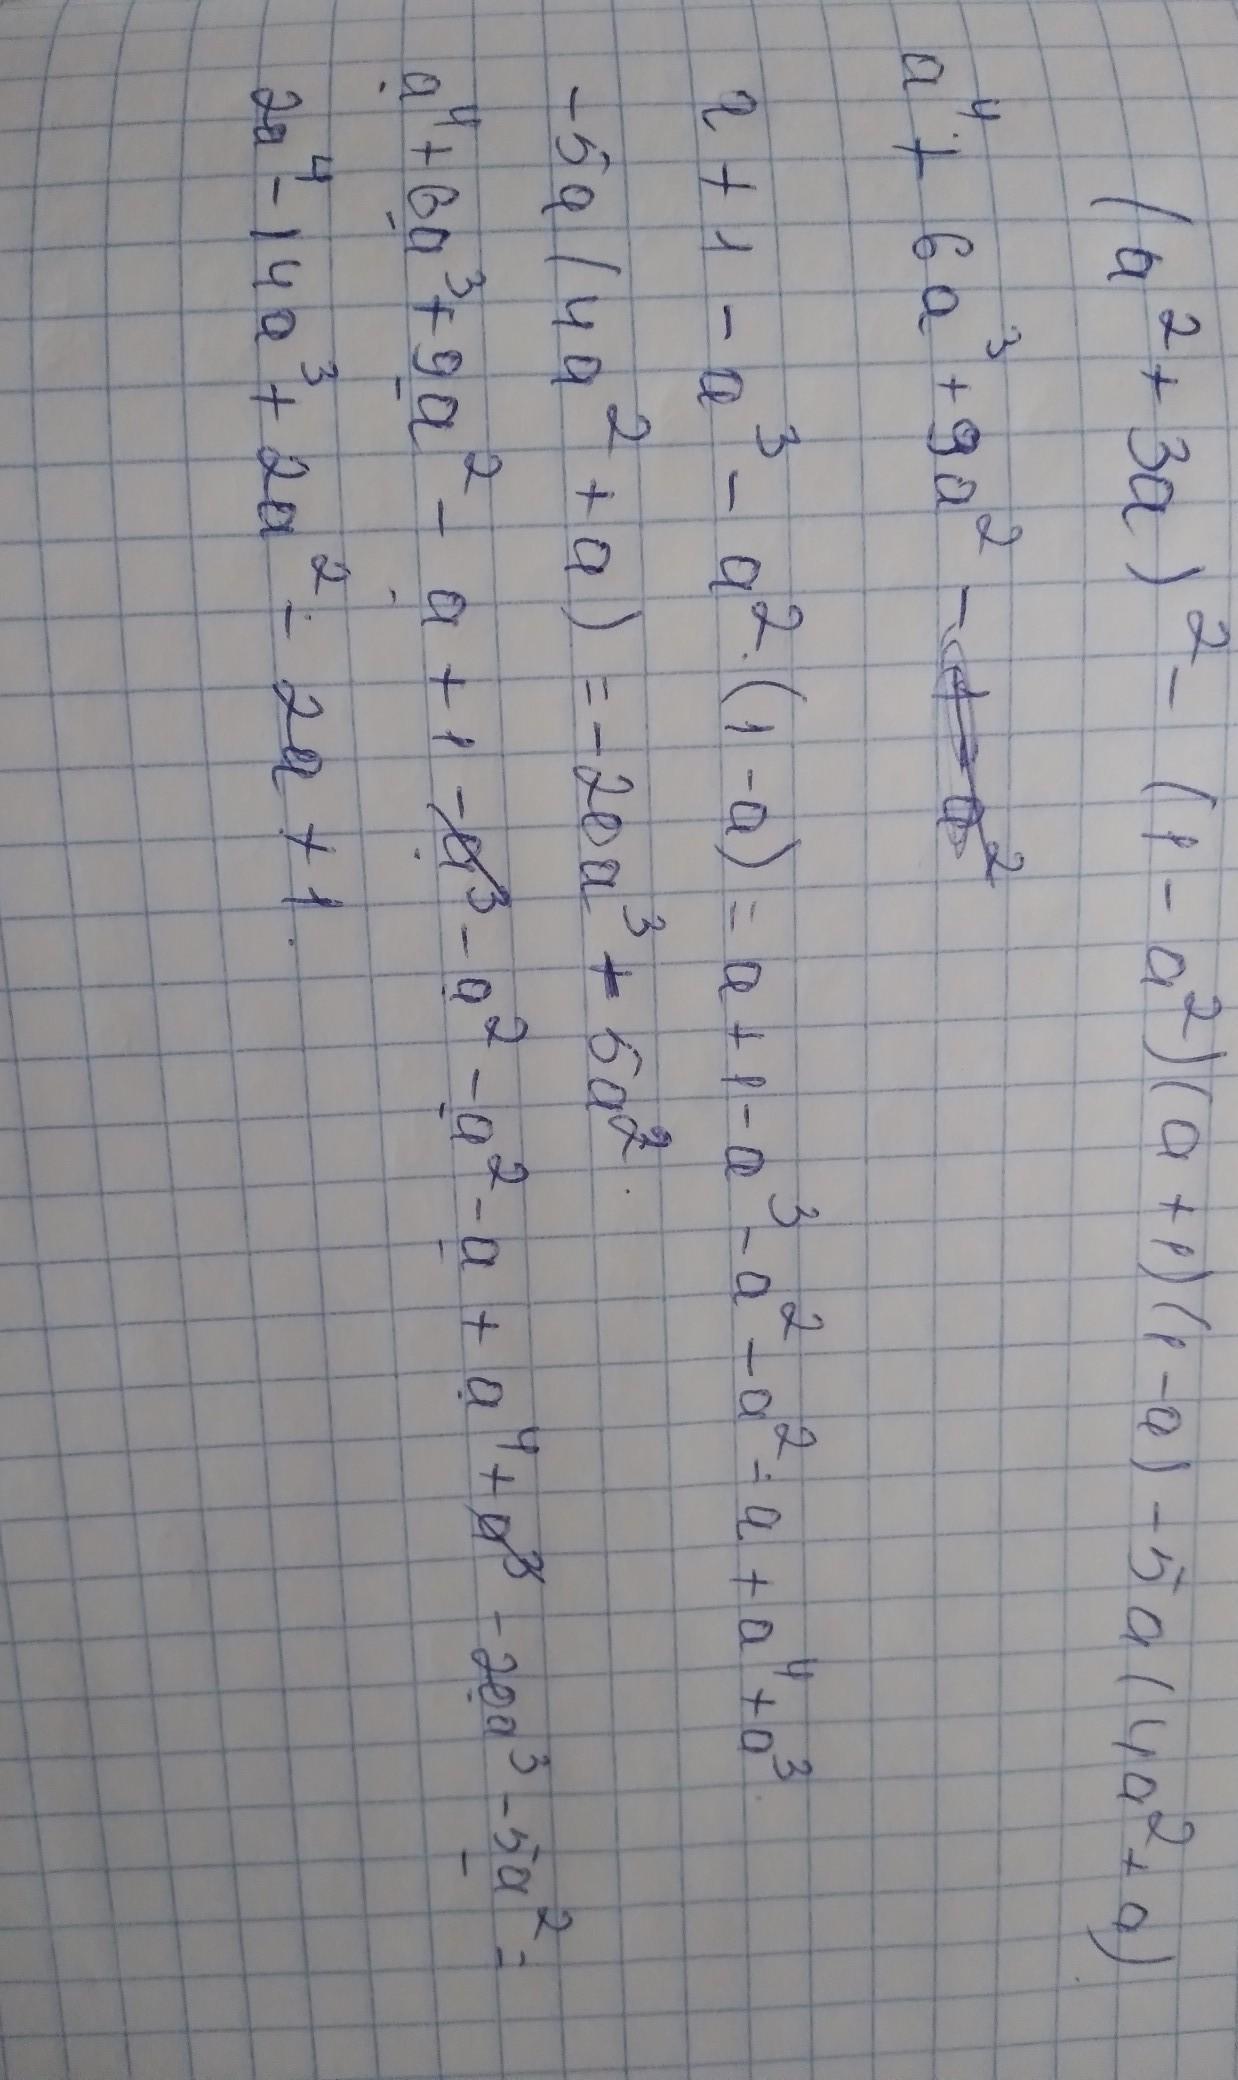 (a² + 3a)² - (1 - a²)(a + 1)(1 - a) - 5a(4a² + a)
a⁴ + 6a³ + 9a² -
a + 1 - a³ - a² · (1 - a) = a + 1 - a³ - a² - a² - a + a⁴ + a³
-5a(4a² + a) = -20a³ + 5a²
a⁴ + 6a³ + 9a² - a + 1 - a³ - a² - a² - a + a⁴ + a³ - 20a³ - 5a² =
2a⁴ - 14a³ + 2a² - 2a + 1